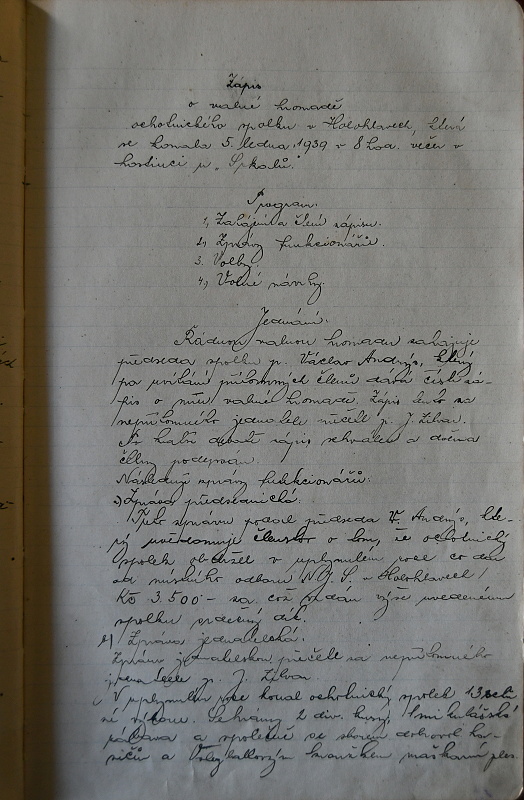 Zápis
o valné hromadě
ochotnického spolku v Holohlavech, která
se konala 5. ledna 1939 v 8 hod. večer v
hostinci u „Špkalů."
Program:
1, Zahájení a čtení zápisu.
2, Zprávy funkcionářů.
3. Volby.
4, Volné návrhy.
Jednání:
Řádnou valnou hromadu zahajuje
předseda spolku p. Václav Andrýs, který
po uvítání přítomných členů dává čísti zá-
pis o minulé valné hromadě. Zápis tento za
nepřítomného jednatele přečetl p. J. Zilvar.
Po krátké debatě zápis schválen a dvěma
členy podepsán.
Následují zprávy funkcionářů:
a) Zpráva předsednická:
Tuto zprávu podal předseda V. Andrýs, kte-
rý uvědomuje členstvo o tom, že ochotnický
spolek obdržel v uplynulém roce co dar
od místního odboru N.J.S. v Holohlavech
Kč 3.500– za což vzdán výše uvedenému
spolku srdečný dík.
b) Zpráva jednatelská:
Zprávu jednatelskou přečetl za nepřítomného
jednatele p. J. Zilvar.
V uplynulém roce konal ochotnický spolek 13
výboru. Sehrány 2 div. kusy,
a společně se sborem dobrovol. ha-
sičů a Volleyballovým kroužkem maškarní ples